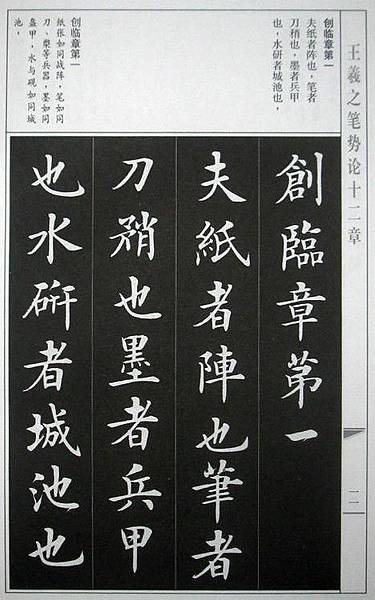 王羲之笔势论十二章
二
创临章第一
夫纸者阵也，笔者
刀稍也，墨者兵甲
也，水研者城池也，
创临章第一
纸张如同战阵，笔如同
刀、槊等兵器，墨如同
盔甲，水与砚如同城
池。
創臨章第一
夫紙者陣也筆者
刀矟也墨者兵甲
也水研者城池也